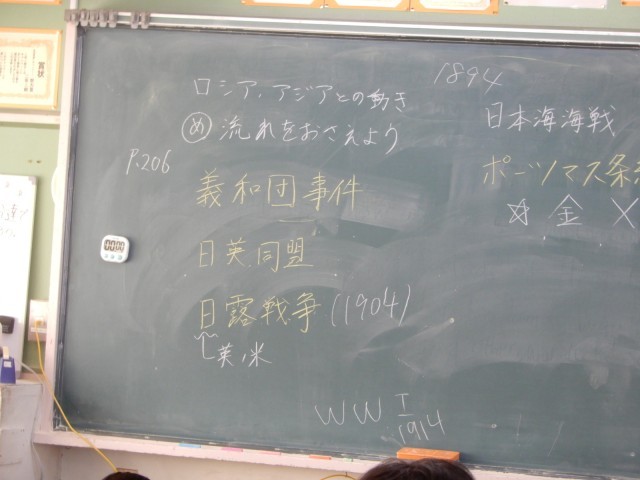 ロシア、アジアとの動き
め 流れをおさえよう
P.206
義和団事件
日英同盟
日露戦争(1904)
英、米
1894
日本海海戦
ポーツマス条
☆ 金 ×
WW I
1914
賞状
00:00